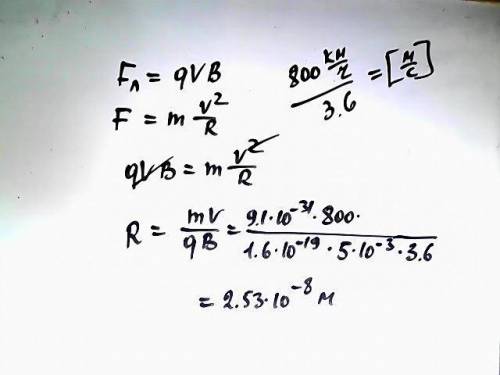 Fл = qVB
800 км/ч / 3.6 = [м/с]
F = m V²/R
qVB = m V²/R
R = mV/qB = 9.1·10⁻³¹·800· / 1.6·10⁻¹⁹·5·10⁻³·3.6
= 2.53·10⁻⁸ м